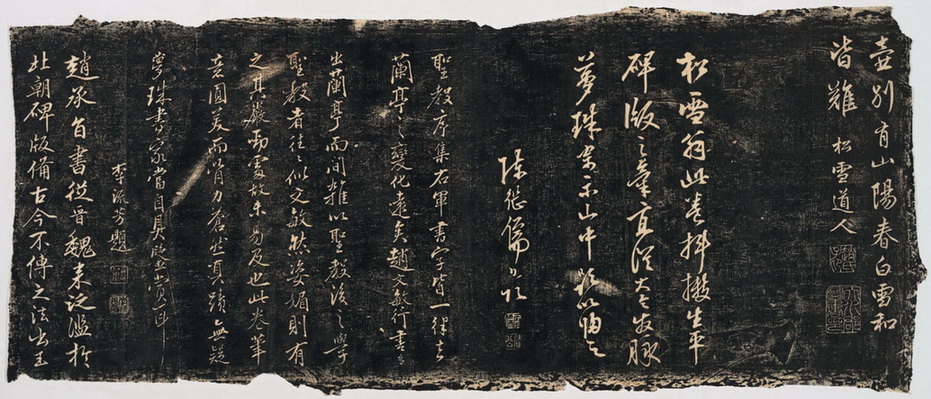 壺別有山陽春白雪和
皆難 松雪道人
松雪翁此卷抖擻生平
碑版之筆直從大令發脉
夢珠出示山中跋以歸之
陳繼儒
聖教序集右軍書字皆一律去
蘭亭之變化遠矣趙文敏行書多
出蘭亭而間雜以聖教後之學
聖教者往往似文敏然姿媚則有
之其嚴而靈故未易及也此卷筆
意圓美而骨力蒼然真蹟無疑
夢珠書家當自具賞耳
李流芳題
趙承旨書從晉魏來泛濫於
北朝碑版備古今不傳之法出主